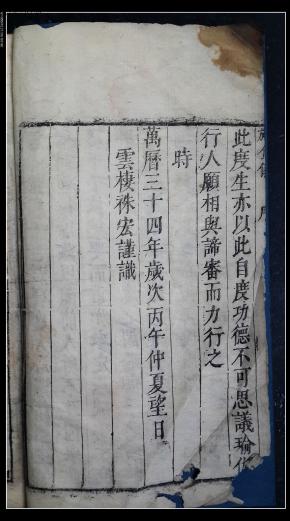 此度生亦以此自度功德不可思議瑜伽
行人願相與諦審而力行之
時
萬曆三十四年歲次丙午仲夏望日
雲棲袾宏謹識